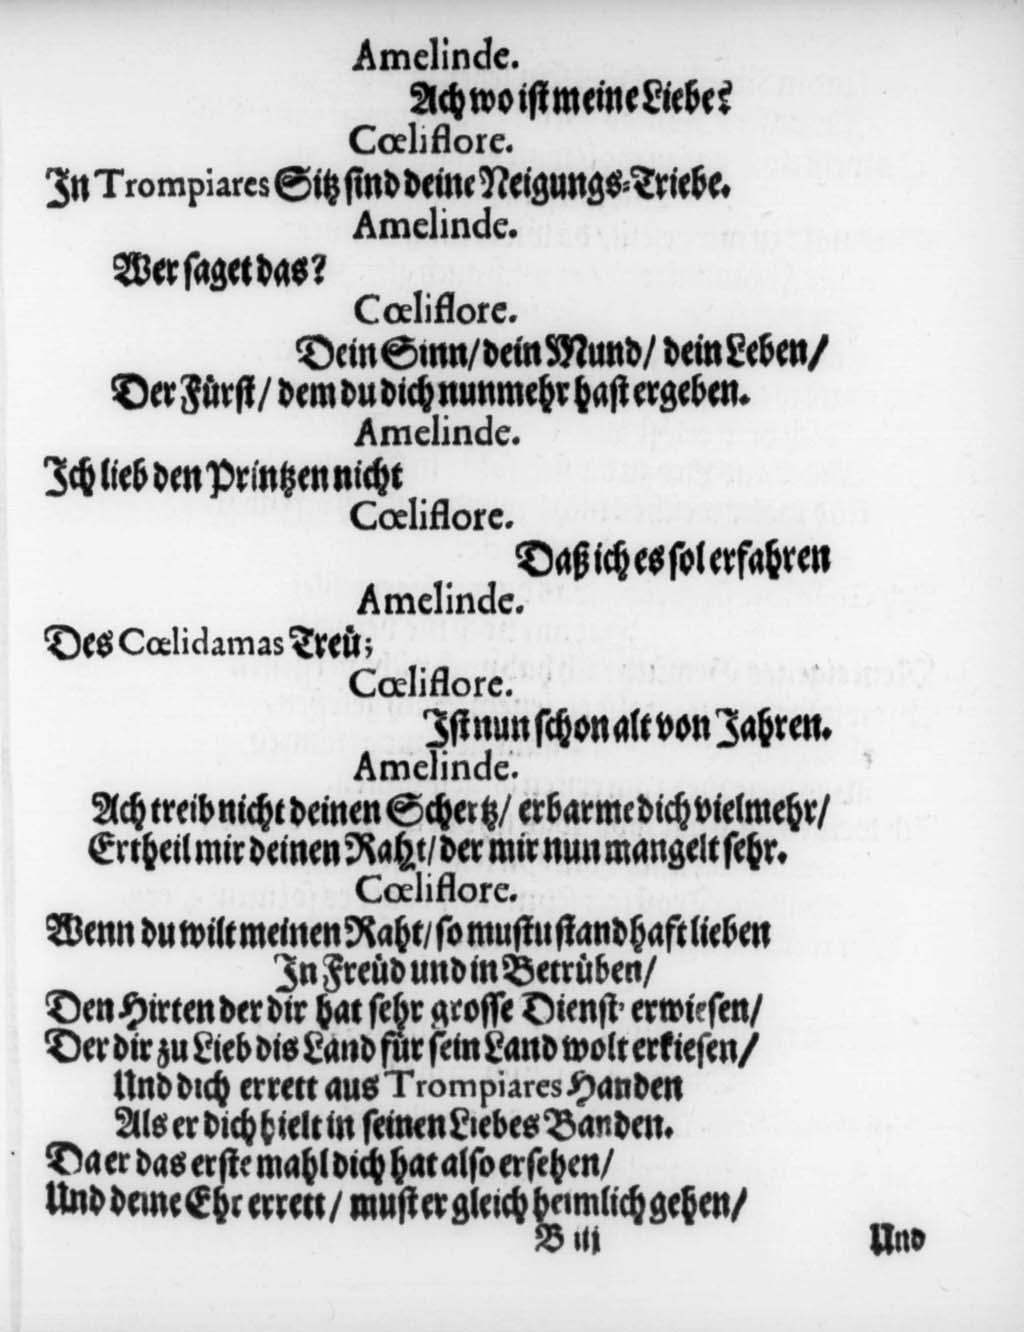 Amelinde.
Ach wo ist meine Liebe?
Cœliflore.
In Trompiares Sitz sind deine Neigungs-Triebe.
Amelinde.
Wer saget das?
Cœliflore.
Dein Sinn/ dein Mund/ dein Leben/
Der Fürst/ dem du dich nunmehr hast ergeben.
Amelinde.
Ich lieb den Printzen nicht
Cœliflore.
Daß ich es sol erfahren
Amelinde.
Des Cœlidamas Treü;
Cœliflore.
Ist nun schon alt von Jahren.
Amelinde.
Ach treib nicht deinen Schertz/ erbarme dich vielmehr/
Ertheil mir deinen Raht/ der mir nun mangelt sehr.
Cœliflore.
Wenn du wilt meinen Raht/ so mustu standhaft lieben
In Freüd und in Betrüben/
Den Hirten der dir hat sehr grosse Dienst erwiesen/
Der dir zu Lieb dis Land für sein Land wolt erkiesen/
Und dich errett aus Trompiares Handen
Als er dich hielt in seinen Liebes Banden.
Da er das erste mahl dich hat also ersehen/
Und deine Ehr errett/ must er gleich heimlich gehen/
B iij
Und